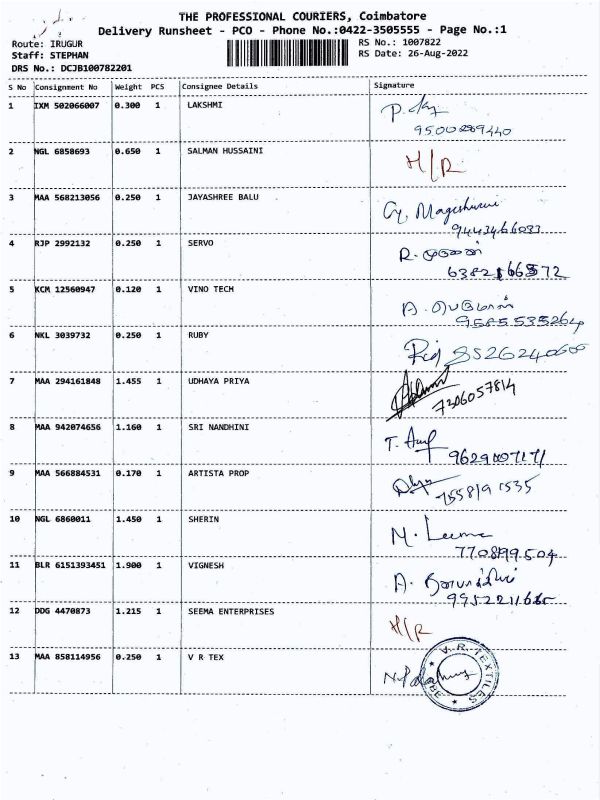 THE PROFESSIONAL COURIERS, Coimbatore
Delivery Runsheet - PCO - Phone No.:0422-3505555 - Page No.:1
Route: IRUGUR
RS No.: 1007822
Staff: STEPHAN
RS Date: 26-Aug-2022
DRS No.: DCJB100782201
S No Consignment No Weight PCS Consignee Details Signature
1 IXM 502066007 0.300 1 LAKSHMI
2 NGL 6858693 0.650 1 SALMAN HUSSAINI H/R
3 MAA 568213056 0.250 1 JAYASHREE BALU
9443466033
4 RJP 2992132 0.250 1 SERVO
5 KCM 12560947 0.120 1 VINO TECH
9585535264
6 NKL 3039732 0.250 1 RUBY
7 MAA 294161848 1.455 1 UDHAYA PRIYA
7306057814
8 MAA 942074656 1.160 1 SRI NANDHINI
9 MAA 566884531 0.170 1 ARTISTA PROP
10 NGL 6860011 1.450 1 SHERIN
M. Leema
7708199504
11 BLR 6151393451 1.900 1 VIGNESH
12 DDG 4470873 1.215 1 SEEMA ENTERPRISES
H/R
13 MAA 858114956 0.250 1 V R TEX
V.R. TEXTILES